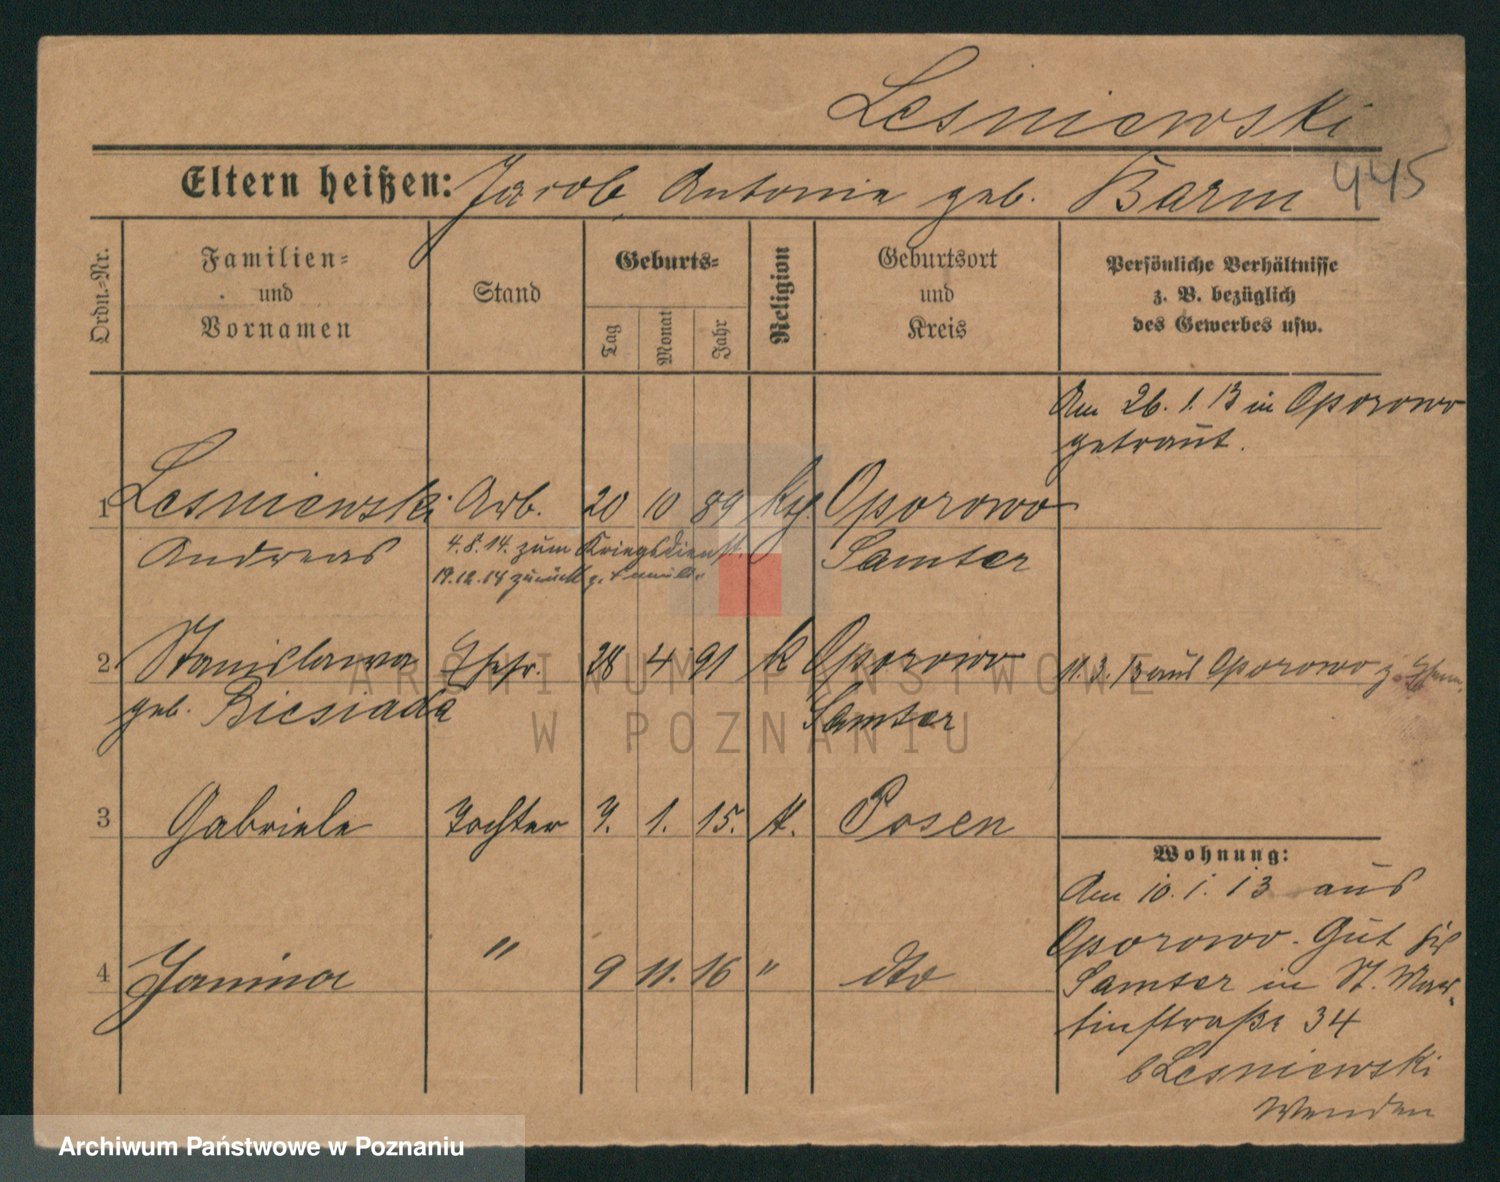 Lesniewski
445
Eltern heißen: Jacob, Antonie geb. Barm
Ordn.-Nr.
Familien-
und
Vornamen
Stand
Geburts-
Tag
Monat
Jahr
Religion
Geburtsort
und
Kreis
Persönliche Verhältnisse
z. B. bezüglich
des Gewerbes usw.
Am 26. 1. 13 in Oporowo
getraut.
1 Lesniewski Arb. 20 10 89 Oporowo
Andreas 4.8.14. zum Kriegsdienst. Samter
19.12.14 zurück z. Familie
2 Stanislawa Ehefr. 28 4 91 k Oporowo 11.3.13 aus Oporowo z.
geb. Biesiada Samter
3 Gabriele Tochter 7. 1. 15. k. Posen
Wohnung:
Am 10. 1. 13 aus
4 Janina " 9 11. 16 " dto
Oporowo. Gut
Samter in St. Mar-
tinstraße 34
b Lesniewski
Wenden
ARCHIWUM PAŃSTWOWE
W POZNANIU
Archiwum Państwowe w Poznaniu